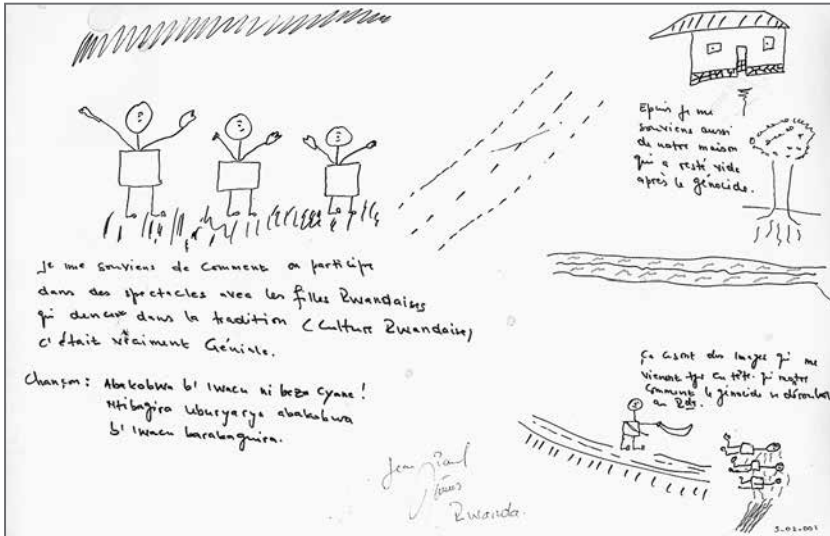 Je me souviens de comment on participe
dans des spectacles avec les filles Rwandaises
qui dencent dans la tradition (Culture Rwandaise)
c'était vraiment Géniale.
Chanson: Abakobwa b'iwacu ni beza cyane!
Ntibagira uburyarya abakobwa
b'iwacu barabaguira.
Epuis je me
souviens aussi
de notre maison
qui a resté vide
après le génocide.
Ça ce sont des images qui me
vienent en tête qui montre
comment le génocide se déroulait
au Rda.
Jean Paul
Rwanda.
3-02-001